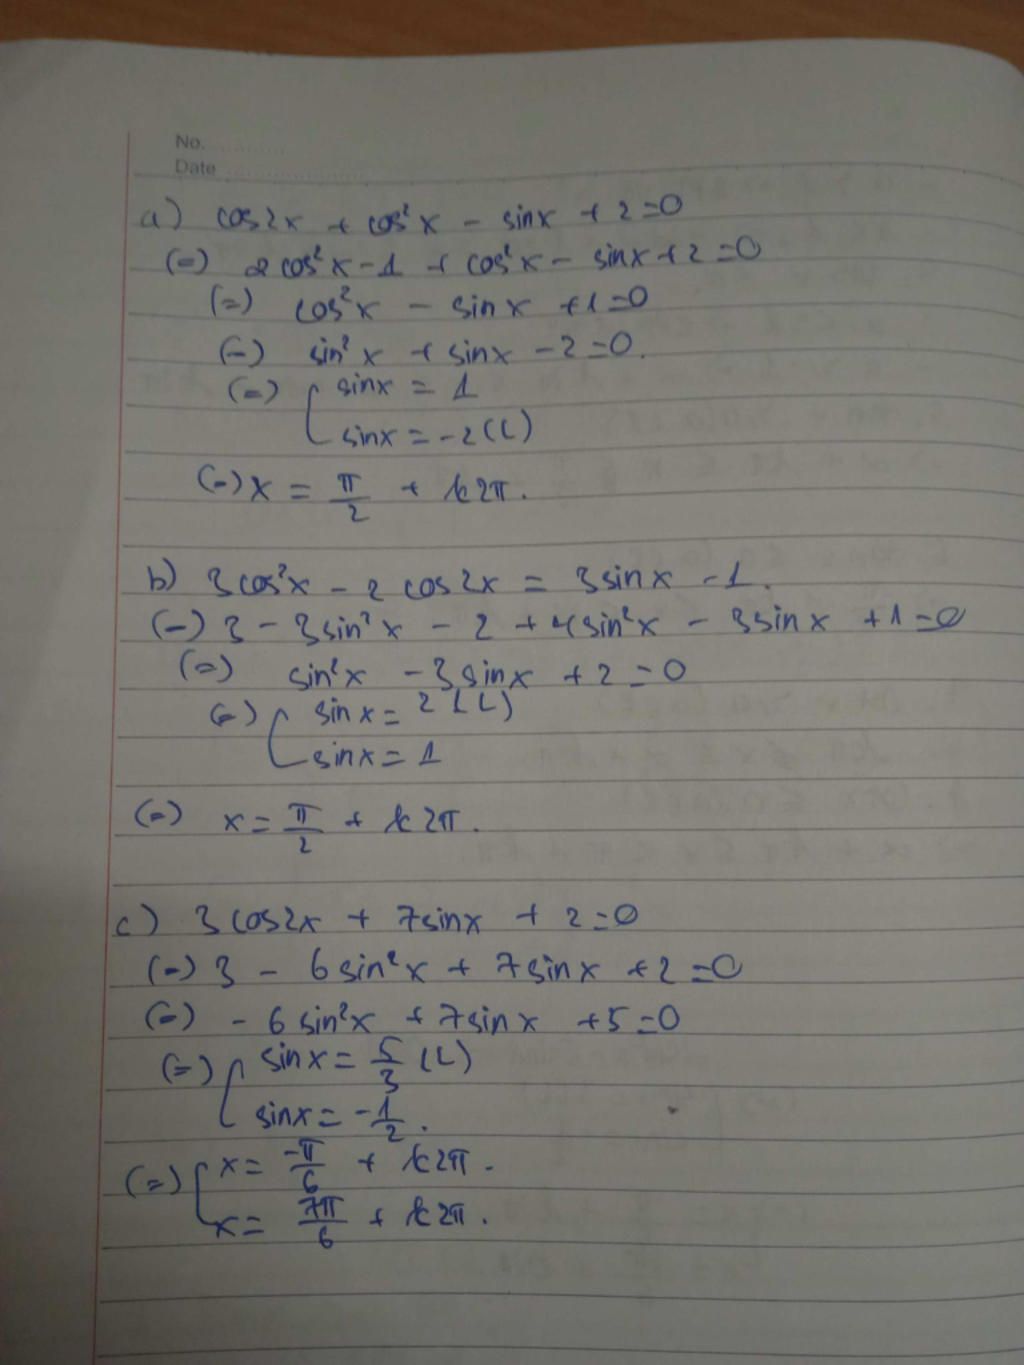 No. ............
Date ....................
a) cos2x + cos²x - sinx + 2 = 0
(=) 2cos²x - 1 + cos²x - sinx + 2 = 0
(=) cos²x - sinx + 1 = 0
(=) sin²x + sinx - 2 = 0.
(=) [ sinx = 1
sinx = -2 (L)
(=) x = π/2 + k2π.
b) 3cos²x - 2cos2x = 3sinx - 1.
(=) 3 - 3sin²x - 2 + 4sin²x - 3sinx + 1 = 0
(=) sin²x - 3sinx + 2 = 0
(=) [ sinx = 2 (L)
sinx = 1
(=) x = π/2 + k2π.
c) 3cos2x + 7sinx + 2 = 0
(=) 3 - 6sin²x + 7sinx + 2 = 0
(=) - 6sin²x + 7sinx + 5 = 0
(=) [ sinx = 5/3 (L)
sinx = -1/2.
(=) [ x = -π/6 + k2π.
x = 7π/6 + k2π.